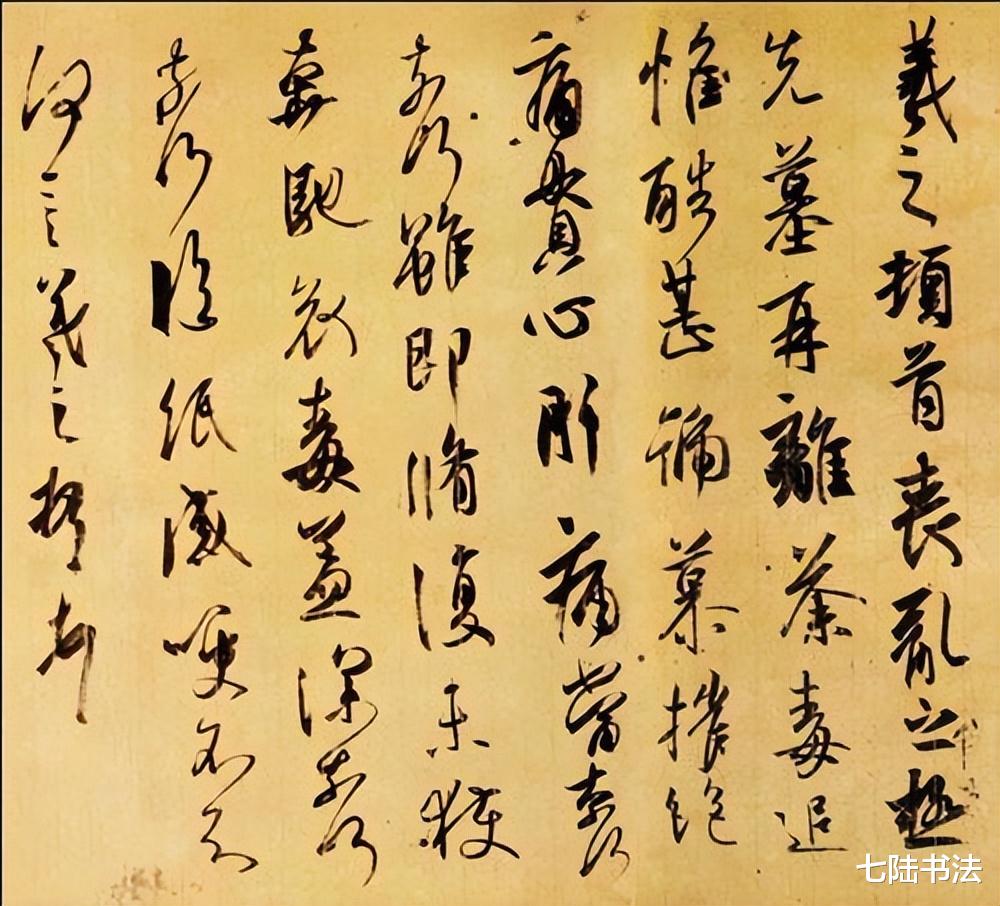 羲之頓首喪亂之極
先墓再離荼毒追
惟酷甚號慕摧絕
痛貫心肝痛當奈何
奈何雖即脩復未獲
奔馳哀毒益深奈何
奈何臨紙感哽不知
何言羲之頓首頓首
七陆书法